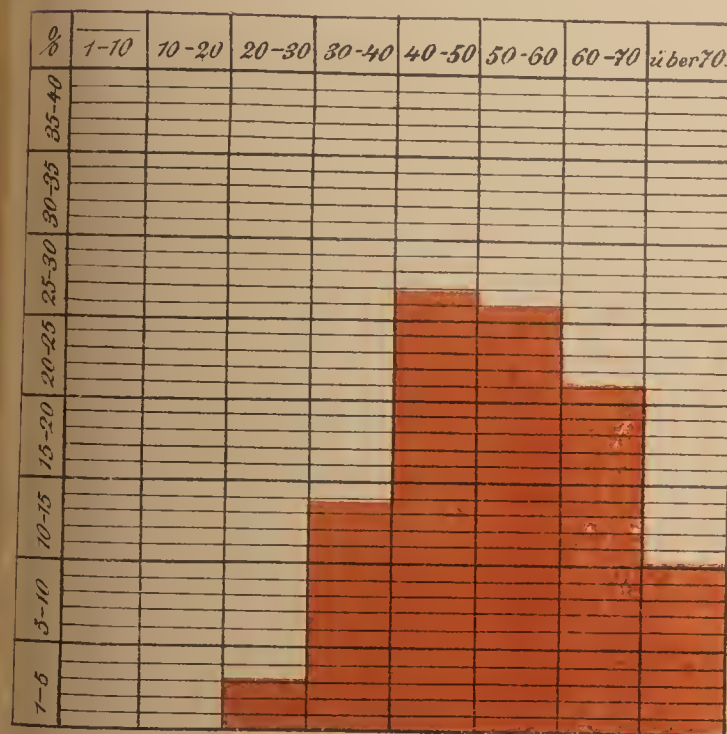 % 1-10 10-20 20-30 30-40 40-50 50-60 60-70 über 70.
35-40
30-35
25-30
20-25
15-20
10-15
5-10
1-5